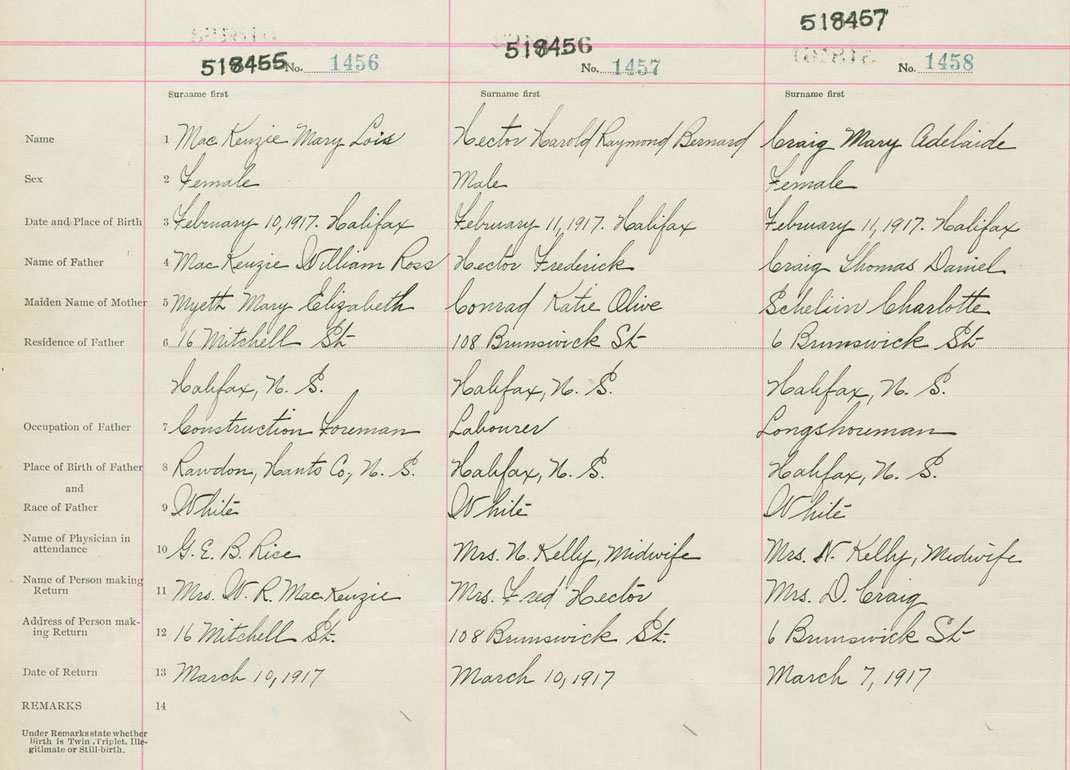 518455 No. 1456
518456 No. 1457
518457 No. 1458
Surname first Surname first Surname first
Name 1 MacKenzie Mary Lois Hector Harold Raymond Bernard Craig Mary Adelaide
Sex 2 Female Male Female
Date and Place of Birth 3 February 10, 1917. Halifax February 11, 1917. Halifax February 11, 1917. Halifax
Name of Father 4 MacKenzie William Ross Hector Frederick Craig Thomas Daniel
Maiden Name of Mother 5 Myett Mary Elizabeth Conrad Katie Olive Charlotte
Residence of Father 6 16 Mitchell St 108 Brunswick St 6 Brunswick St
Halifax, N. S. Halifax, N. S. Halifax, N. S.
Occupation of Father 7 Construction Foreman Labourer Longshoreman
Place of Birth of Father 8 Rawdon, Hants Co., N. S. Halifax, N. S. Halifax, N. S.
and
Race of Father 9 White White White
Name of Physician in
attendance 10 G. E. B. Rice Mrs. N. Kelly, Midwife Mrs. N. Kelly, Midwife
Name of Person making
Return 11 Mrs. W. R. MacKenzie Mrs. Fred Hector Mrs. D. Craig
Address of Person mak-
ing Return 12 16 Mitchell St. 108 Brunswick St. 6 Brunswick St
Date of Return 13 March 10, 1917 March 10, 1917 March 7, 1917
REMARKS 14
Under Remarks state whether
Birth is Twin, Triplet, Ille-
gitimate or Still-birth.